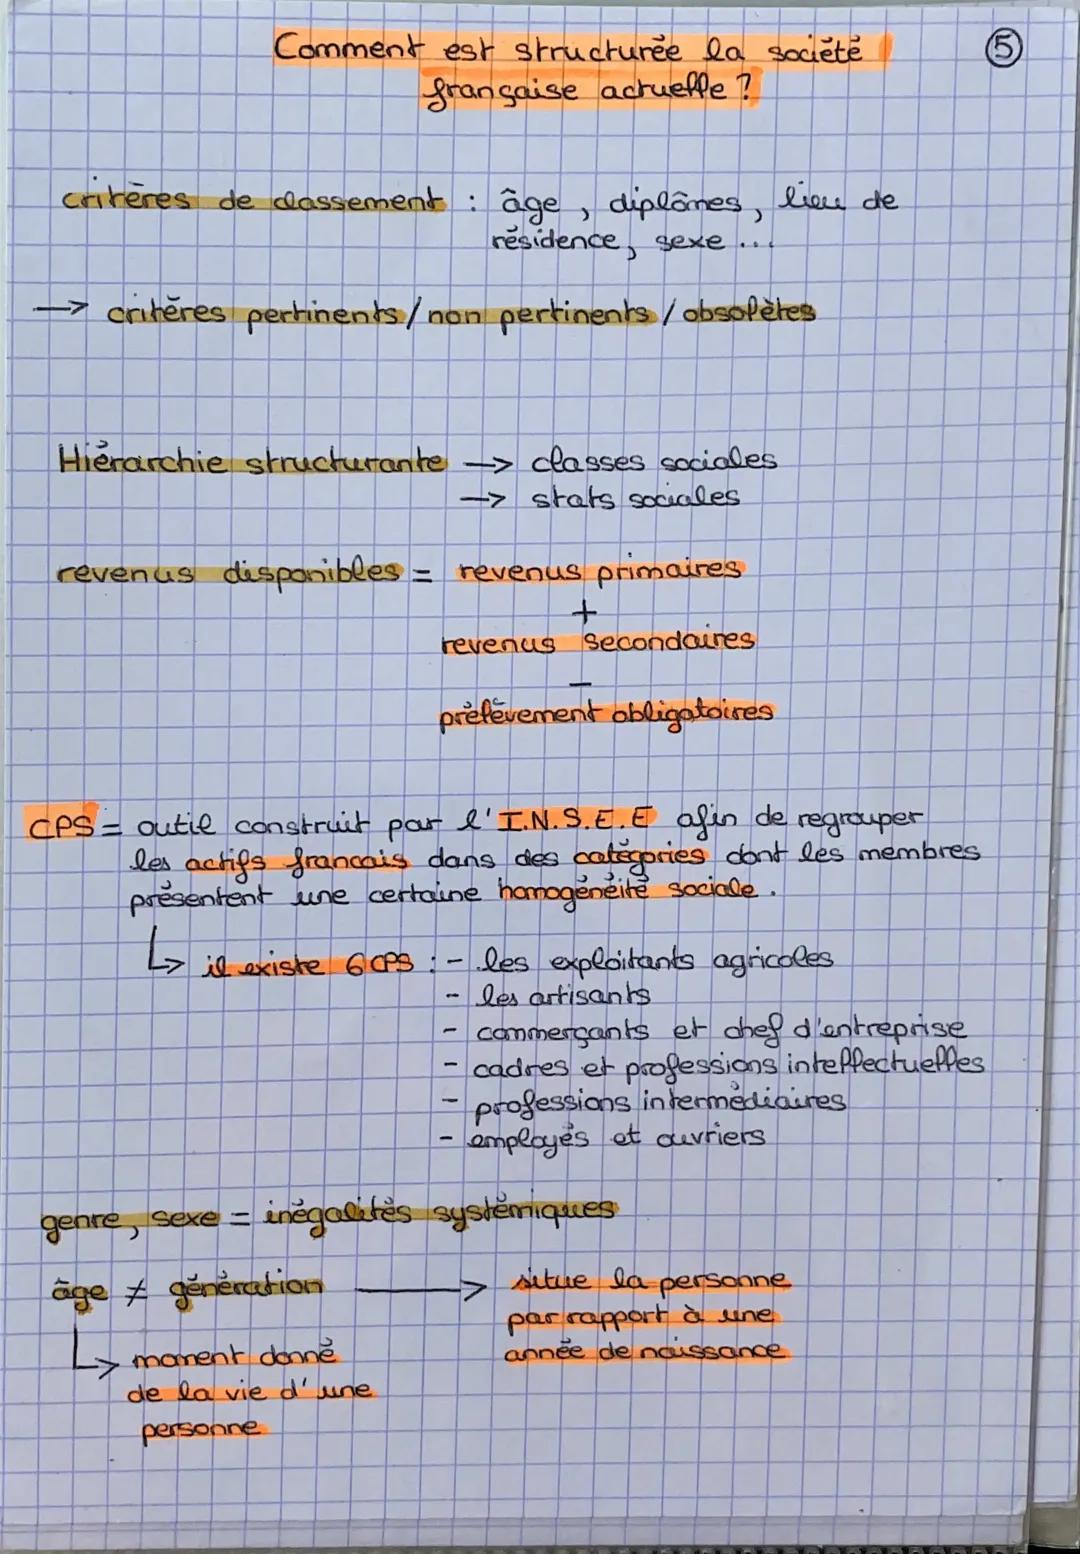 Comment est structurée la société
française actuelle ?
5
critères de classement : âge, diplômes, lieu de
résidence, sexe ...
→ critères pertinents / non pertinents / obsolètes
Hiérarchie structurante → classes sociales
→ stats sociales
revenus disponibles = revenus primaires
+
revenus secondaires
-
prélèvement obligatoires
CPS = outil construit par l'I.N.S.E.E afin de regrouper
les actifs francais dans des catégories dont les membres
présentent une certaine homogénéité sociale.
↳ il existe 6 CPS : - les exploitants agricoles
- les artisants
- commerçants et chef d'entreprise
- cadres et professions intellectuelles
- professions intermédiaires
- employés et ouvriers
genre, sexe = inégalités systémiques
âge ≠ génération → situe la personne
par rapport à une
année de naissance
↳ moment donné
de la vie d'une
personne